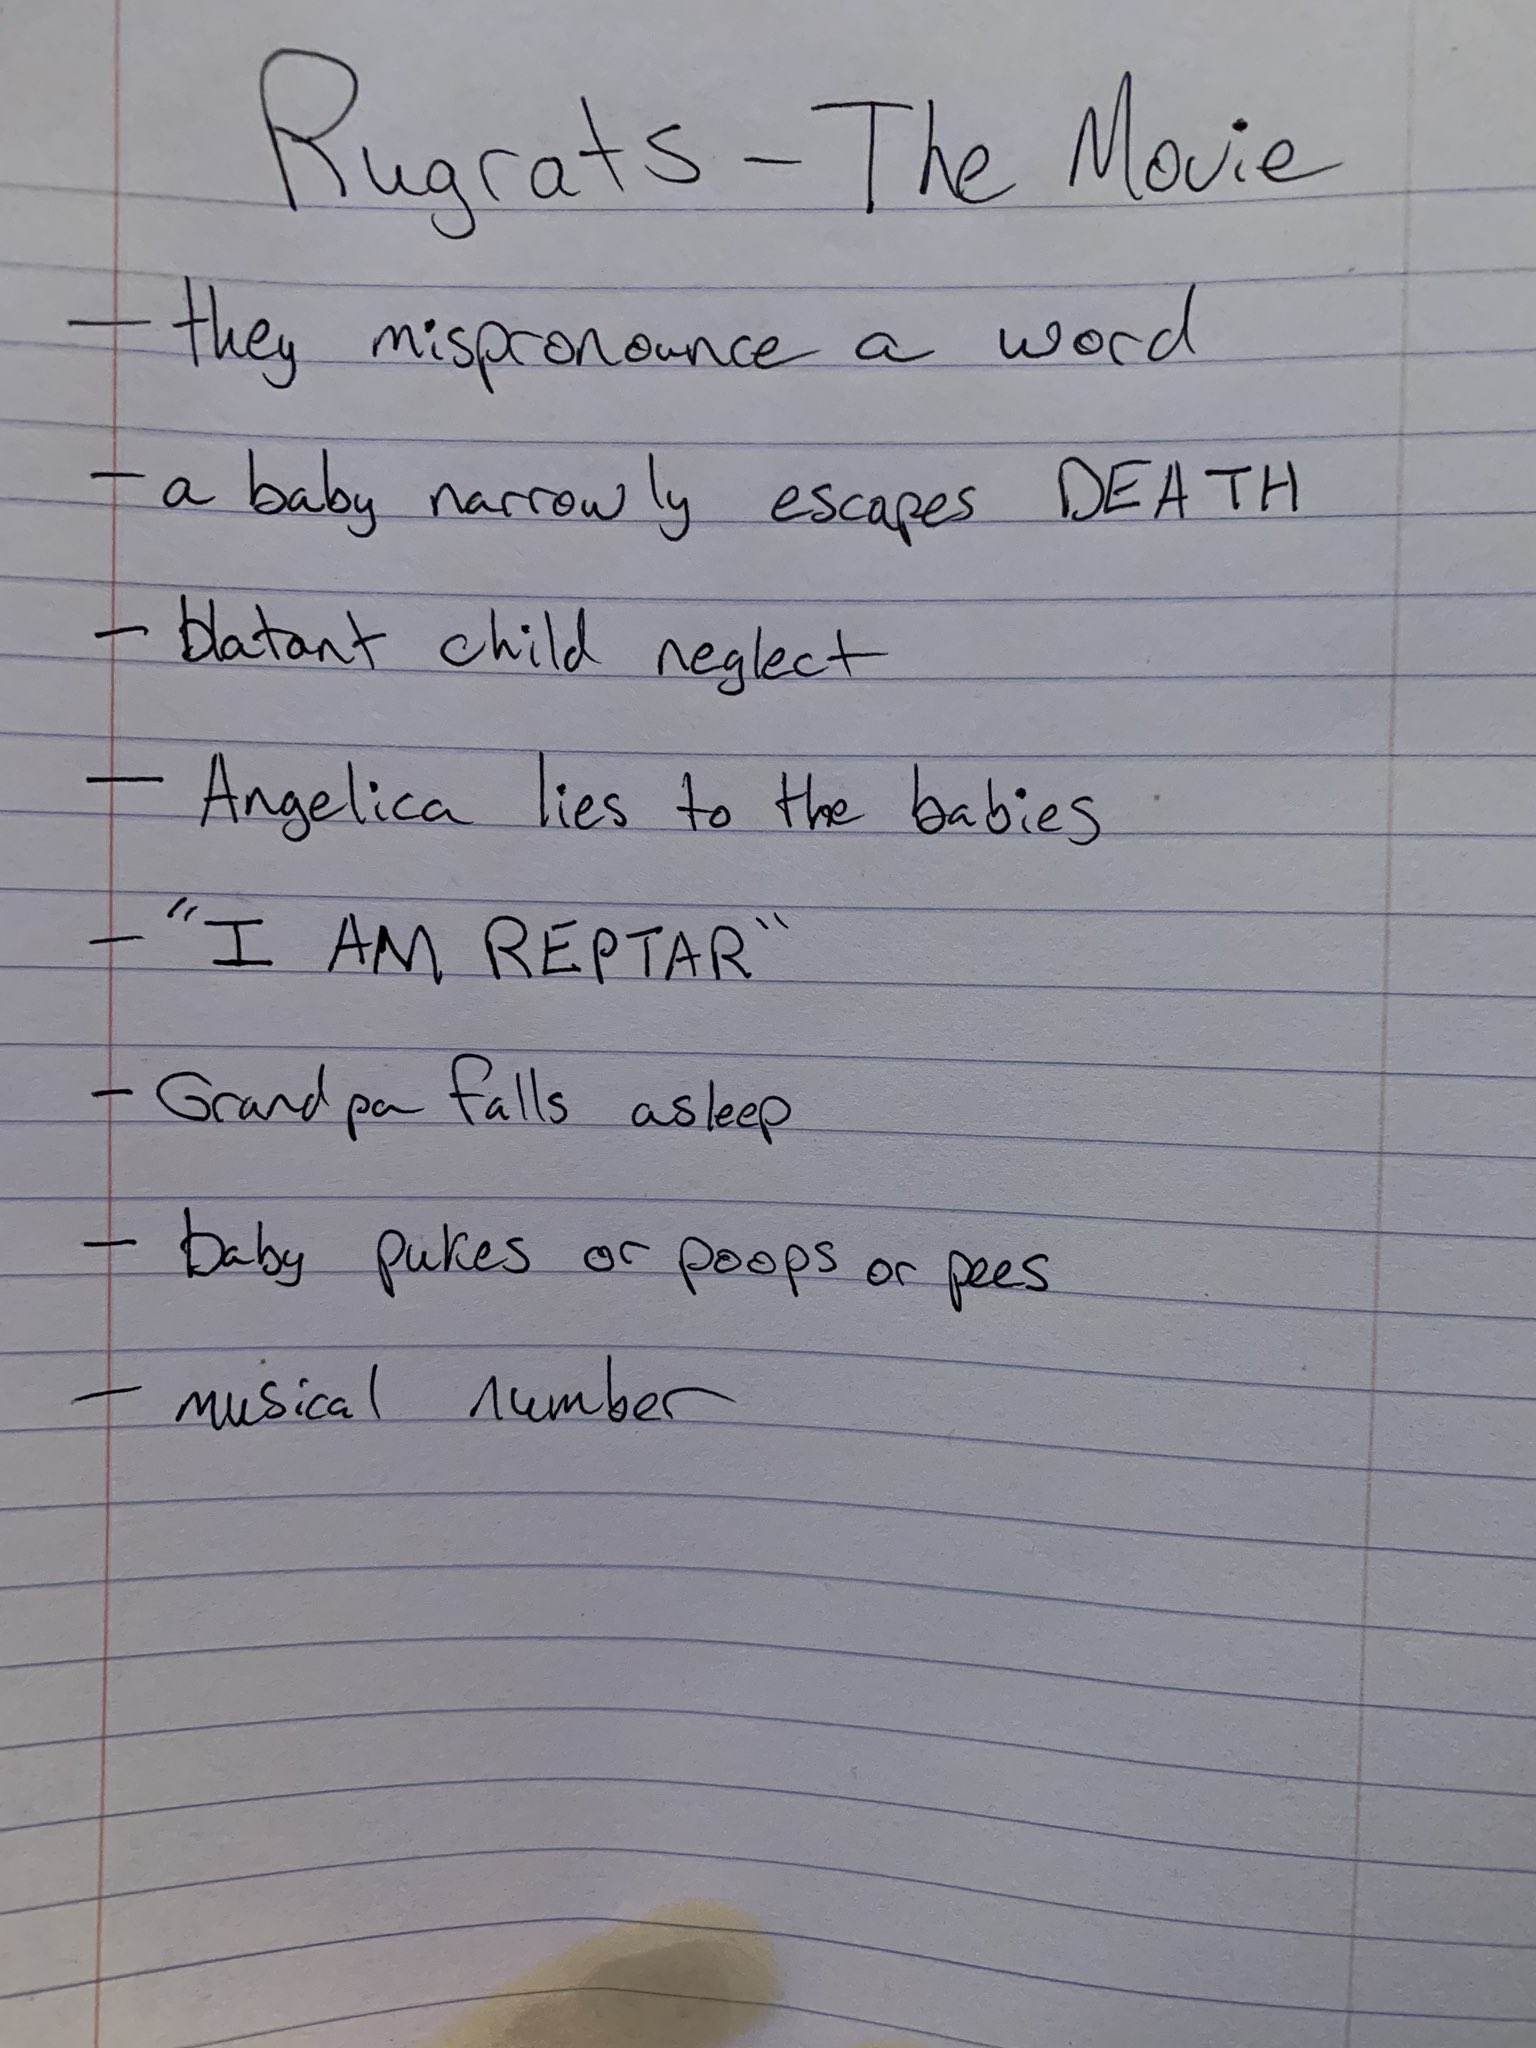 Rugrats - The Movie
- they mispronounce a word
- a baby narrowly escapes DEATH
- blatant child neglect
- Angelica lies to the babies
- "I AM REPTAR"
- Grandpa falls asleep
- baby pukes or poops or pees
- musical number